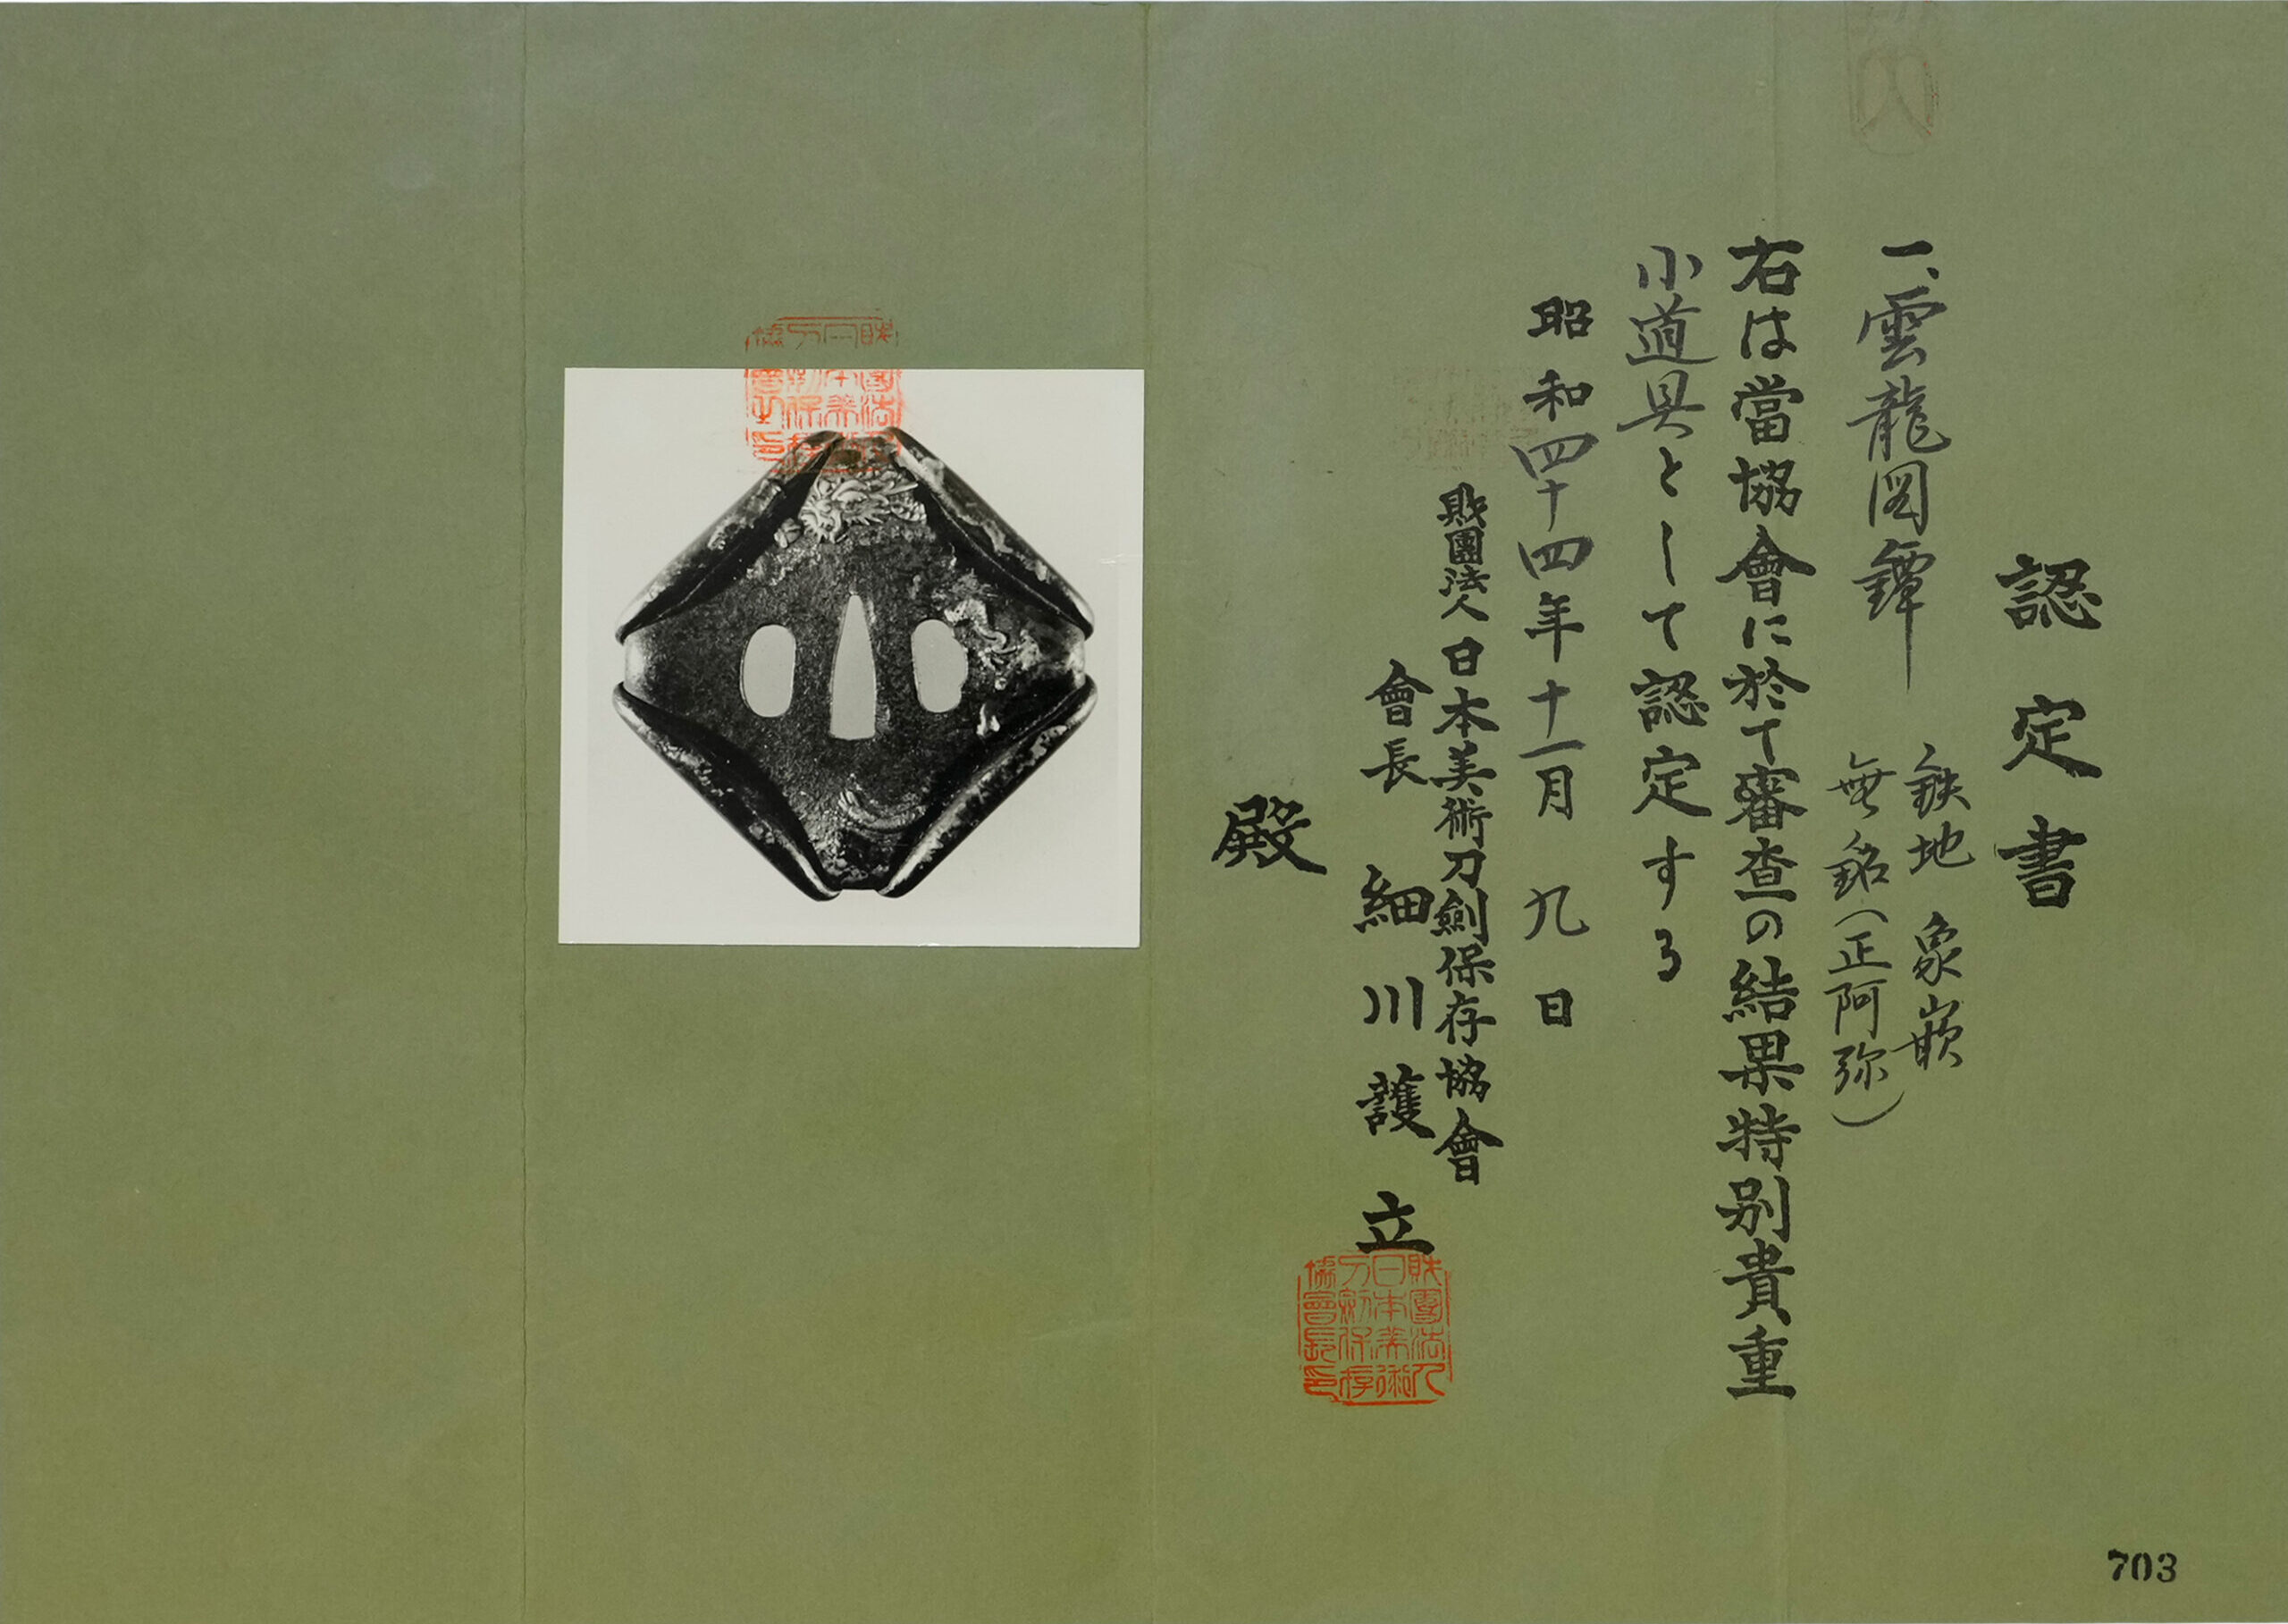 認定書
一、雲龍図鐔
鉄地 象嵌
無銘（正阿弥）
右は當協會に於て審査の結果特別貴重
小道具として認定する
昭和四十四年十一月九日
財團法人日本美術刀劍保存協會
會長 細川護立
殿
財團法人
日本美術
刀剣保存
協會長印
703